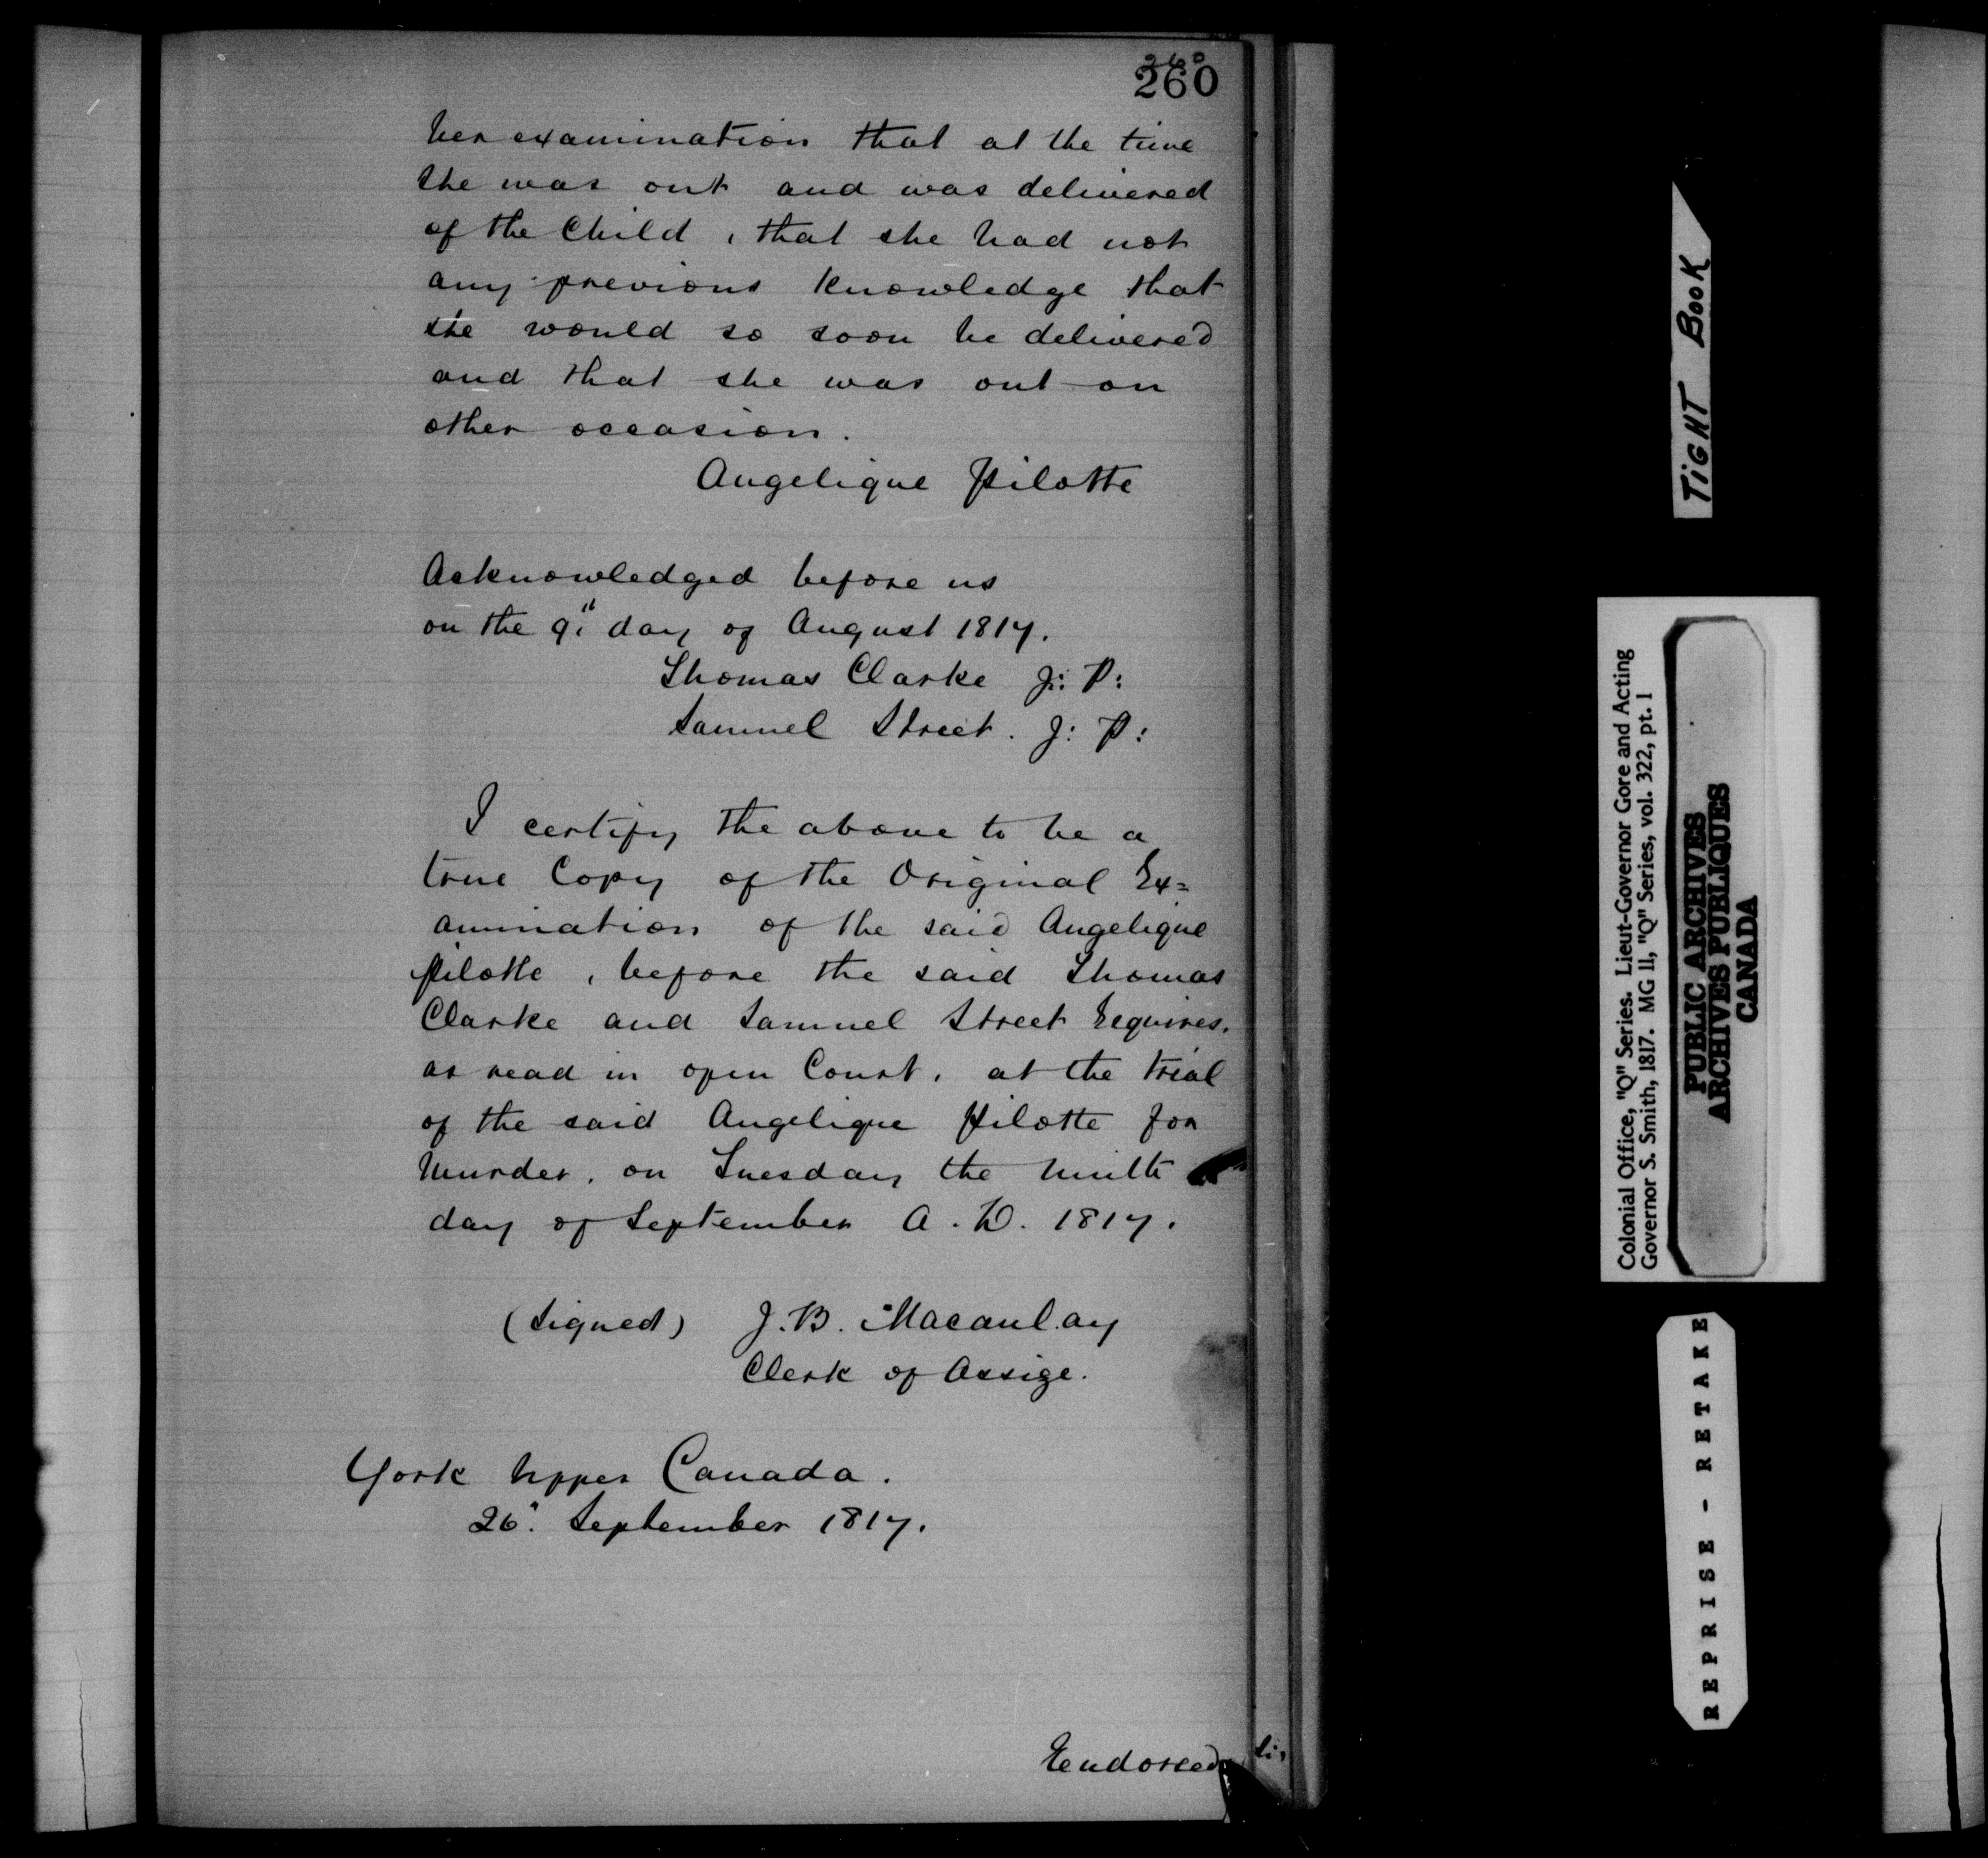 260
260
her examination that at the time
she was out and was delivered
of the Child, that she had not
any previous knowledge that
she would so soon be delivered
and that she was out on
other occasion.
Angelique Pilotte
Acknowledged before us
on the 9th day of August 1817.
Thomas Clarke J: P:
Samuel Street. J: P:
I certify the above to be a
true Copy of the Original Ex=
amination of the said Angelique
Pilotte, before the said Thomas
Clarke and Samuel Street Esquires.
as read in open Court, at the trial
of the said Angelique Pilotte for
Murder, on Tuesday the Ninth
day of September A. D. 1817.
(Signed) J. B. Macaulay
Clerk of Assize.
York Upper Canada.
26" September 1817.
Endorsed
TIGHT BOOK
Colonial Office, "Q" Series. Lieut-Governor Gore and Acting
Governor S. Smith, 1817. MG 11, "Q" Series, vol. 322, pt. 1
PUBLIC ARCHIVES
ARCHIVES PUBLIQUES
CANADA
REPRISE - RETAKE